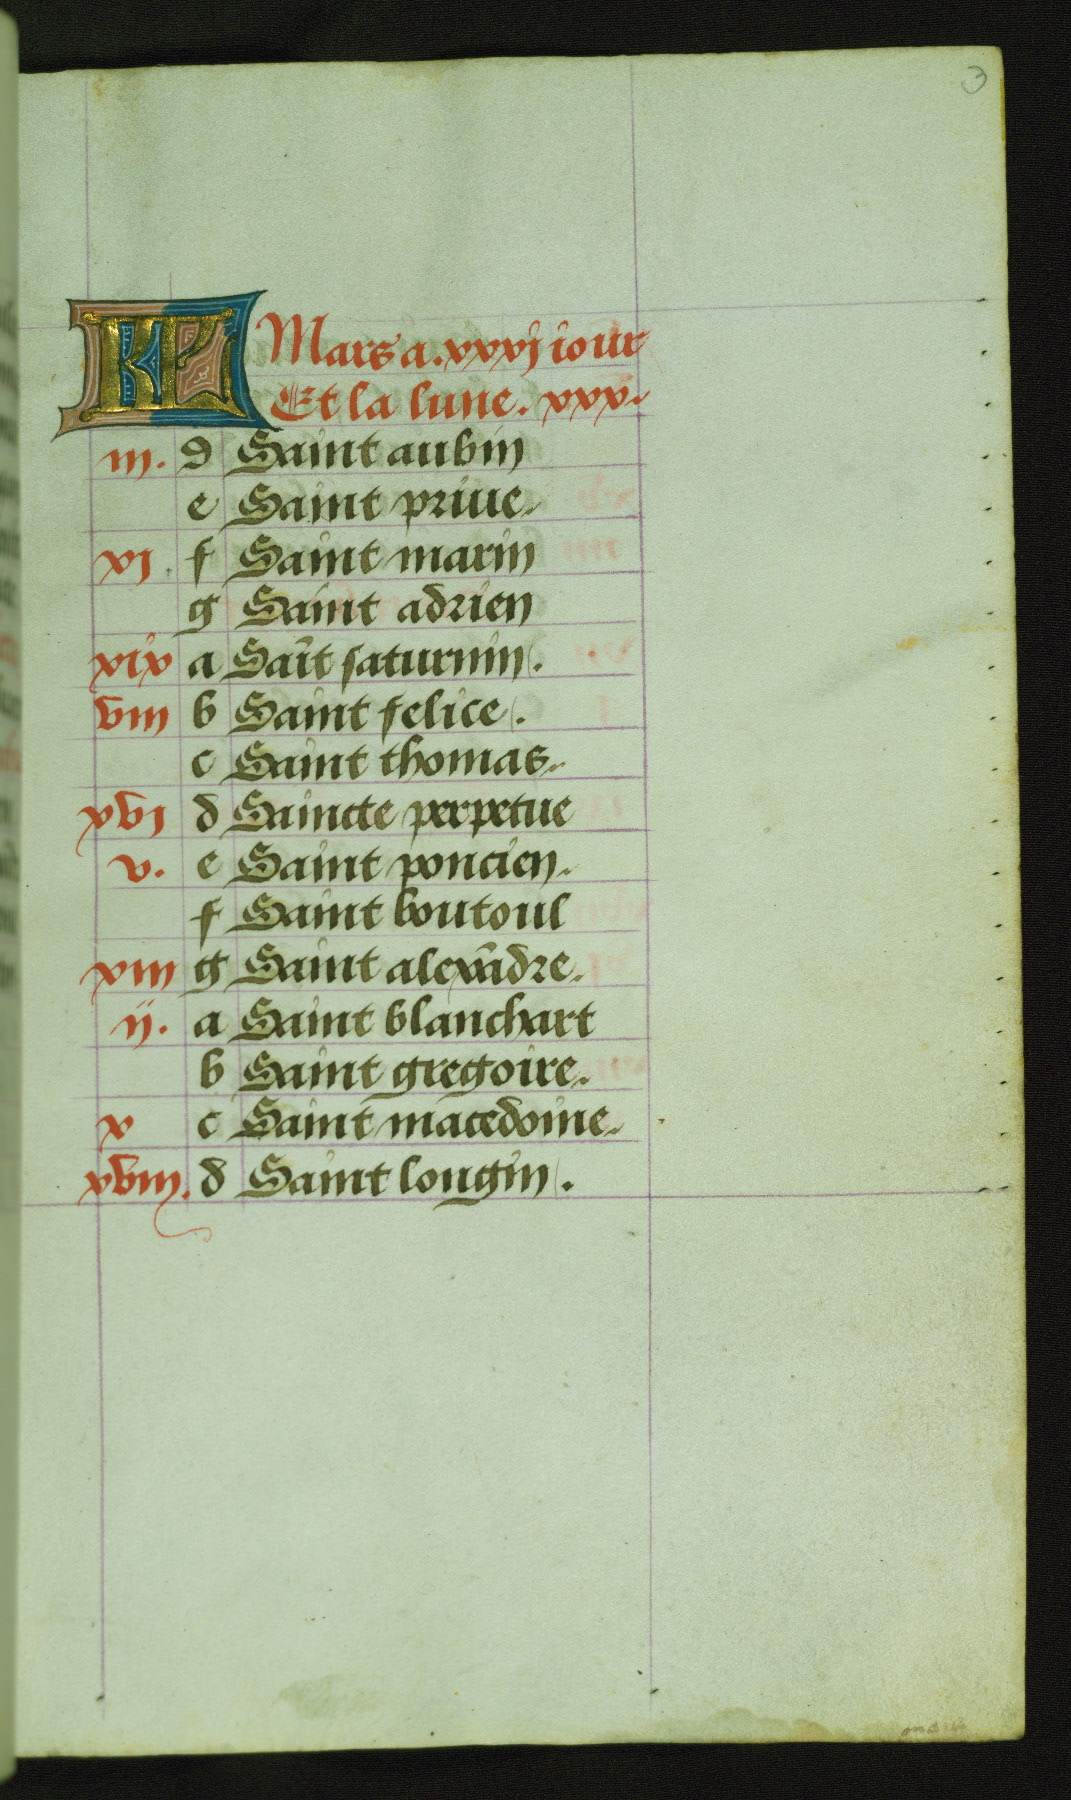 3
KL Mars a . xxxj iour
Et la lune . xxx .
iii . d Saint aubin
e Saint priue .
xi . f Saint marin
g Saint adrien
xix a Sait̄ saturnin .
viii b Saint felice .
c Saint thomas .
xvi d Saincte perpetue
v . e Saint poncien .
f Saint boutoul
xiii g Saint alexādre .
ii . a Saint blanchart
b Saint gregoire .
x c Saint macedoine .
xviii . d Saint longin .